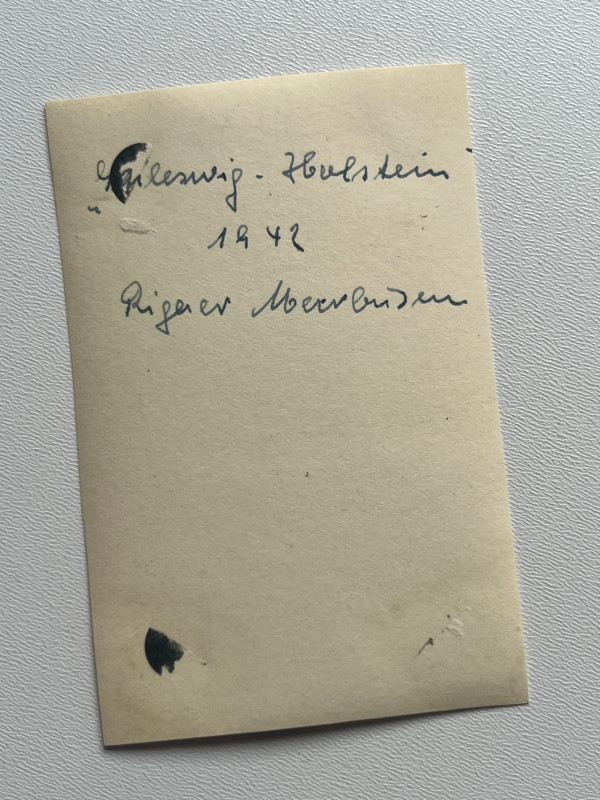 „Schleswig - Holstein"
1942
Rigaer Meerbusen